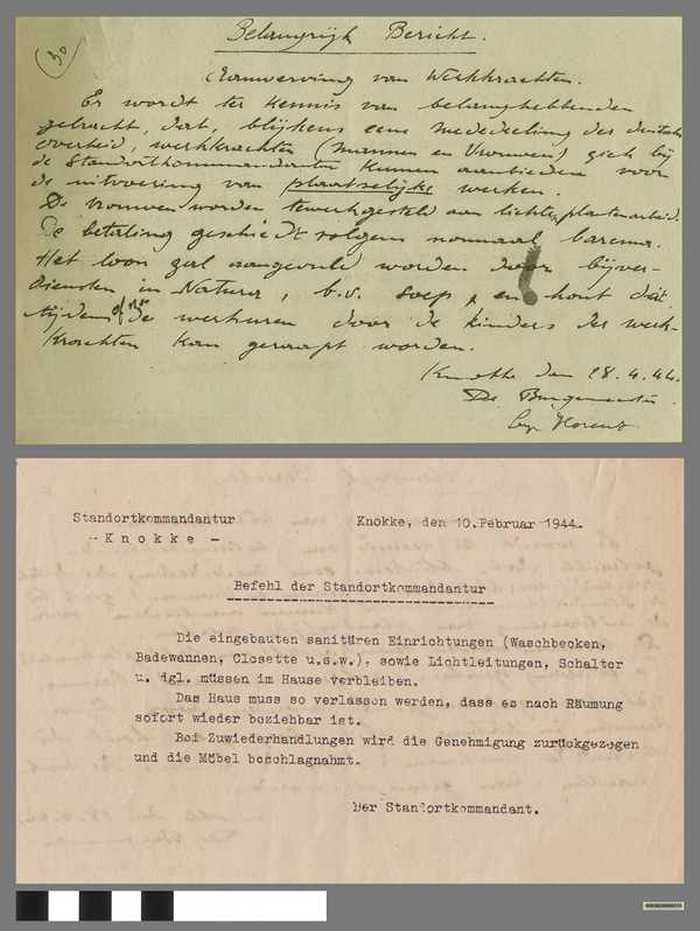 30
Belangrijk Bericht.
Aanwerving van Werkkrachten.
Er wordt ter kennis van belanghebbenden
gebracht, dat, blijkens eene mededeeling der duitsche
overheid, werkkrachten (mannen en vrouwen) zich bij
de Standortkommandantur kunnen aanbieden voor
de uitvoering van plaatselijke werken.
De vrouwen worden tewerkgesteld aan lichte plantenarbeid.
De betaling geschiedt volgens normaal barema.
Het loon zal aangevuld worden door bijver-
diensten in Natura, b.v. soep, en hout dat
tijdens of na de werkuren door de kinders der werk-
krachten kan geraapt worden.
Knokke den 28.4.44.
De Burgemeester
Standortkommandantur
- K n o k k e -
Knokke, den 10.Februar 1944.
Befehl der Standortkommandantur
Die eingebauten sanitären Einrichtungen (Waschbecken,
Badewannen, Closette u.s.w.), sowie Lichtleitungen, Schalter
u. dgl. müssen im Hause verbleiben.
Das Haus muss so verlassen werden, dass es nach Räumung
sofort wieder beziehbar ist.
Bei Zuwiederhandlungen wird die Genehmigung zurückgezogen
und die Möbel beschlagnahmt.
Der Standortkommandant.